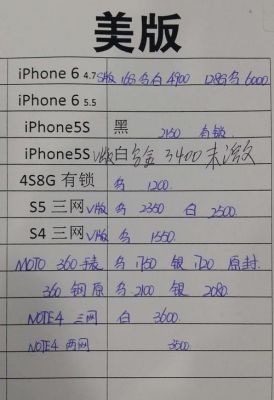 美版
iPhone 6 4.7 S版 16G 乌白 4900 128G乌 6000
iPhone 6 5.5
iPhone5S 黑 2150 有锁
iPhone5S V版 白 金 3400 未激
4S8G 有锁 乌 1200
S5 三网 V版 乌 2350 白 2500
S4 三网 V版 乌 1550
MOTO 360 手表 乌 1750 银 1720 原封
360 钢原 乌 2100 银 2080
NOTE4 三网 白 3600
NOTE4 两网 3500